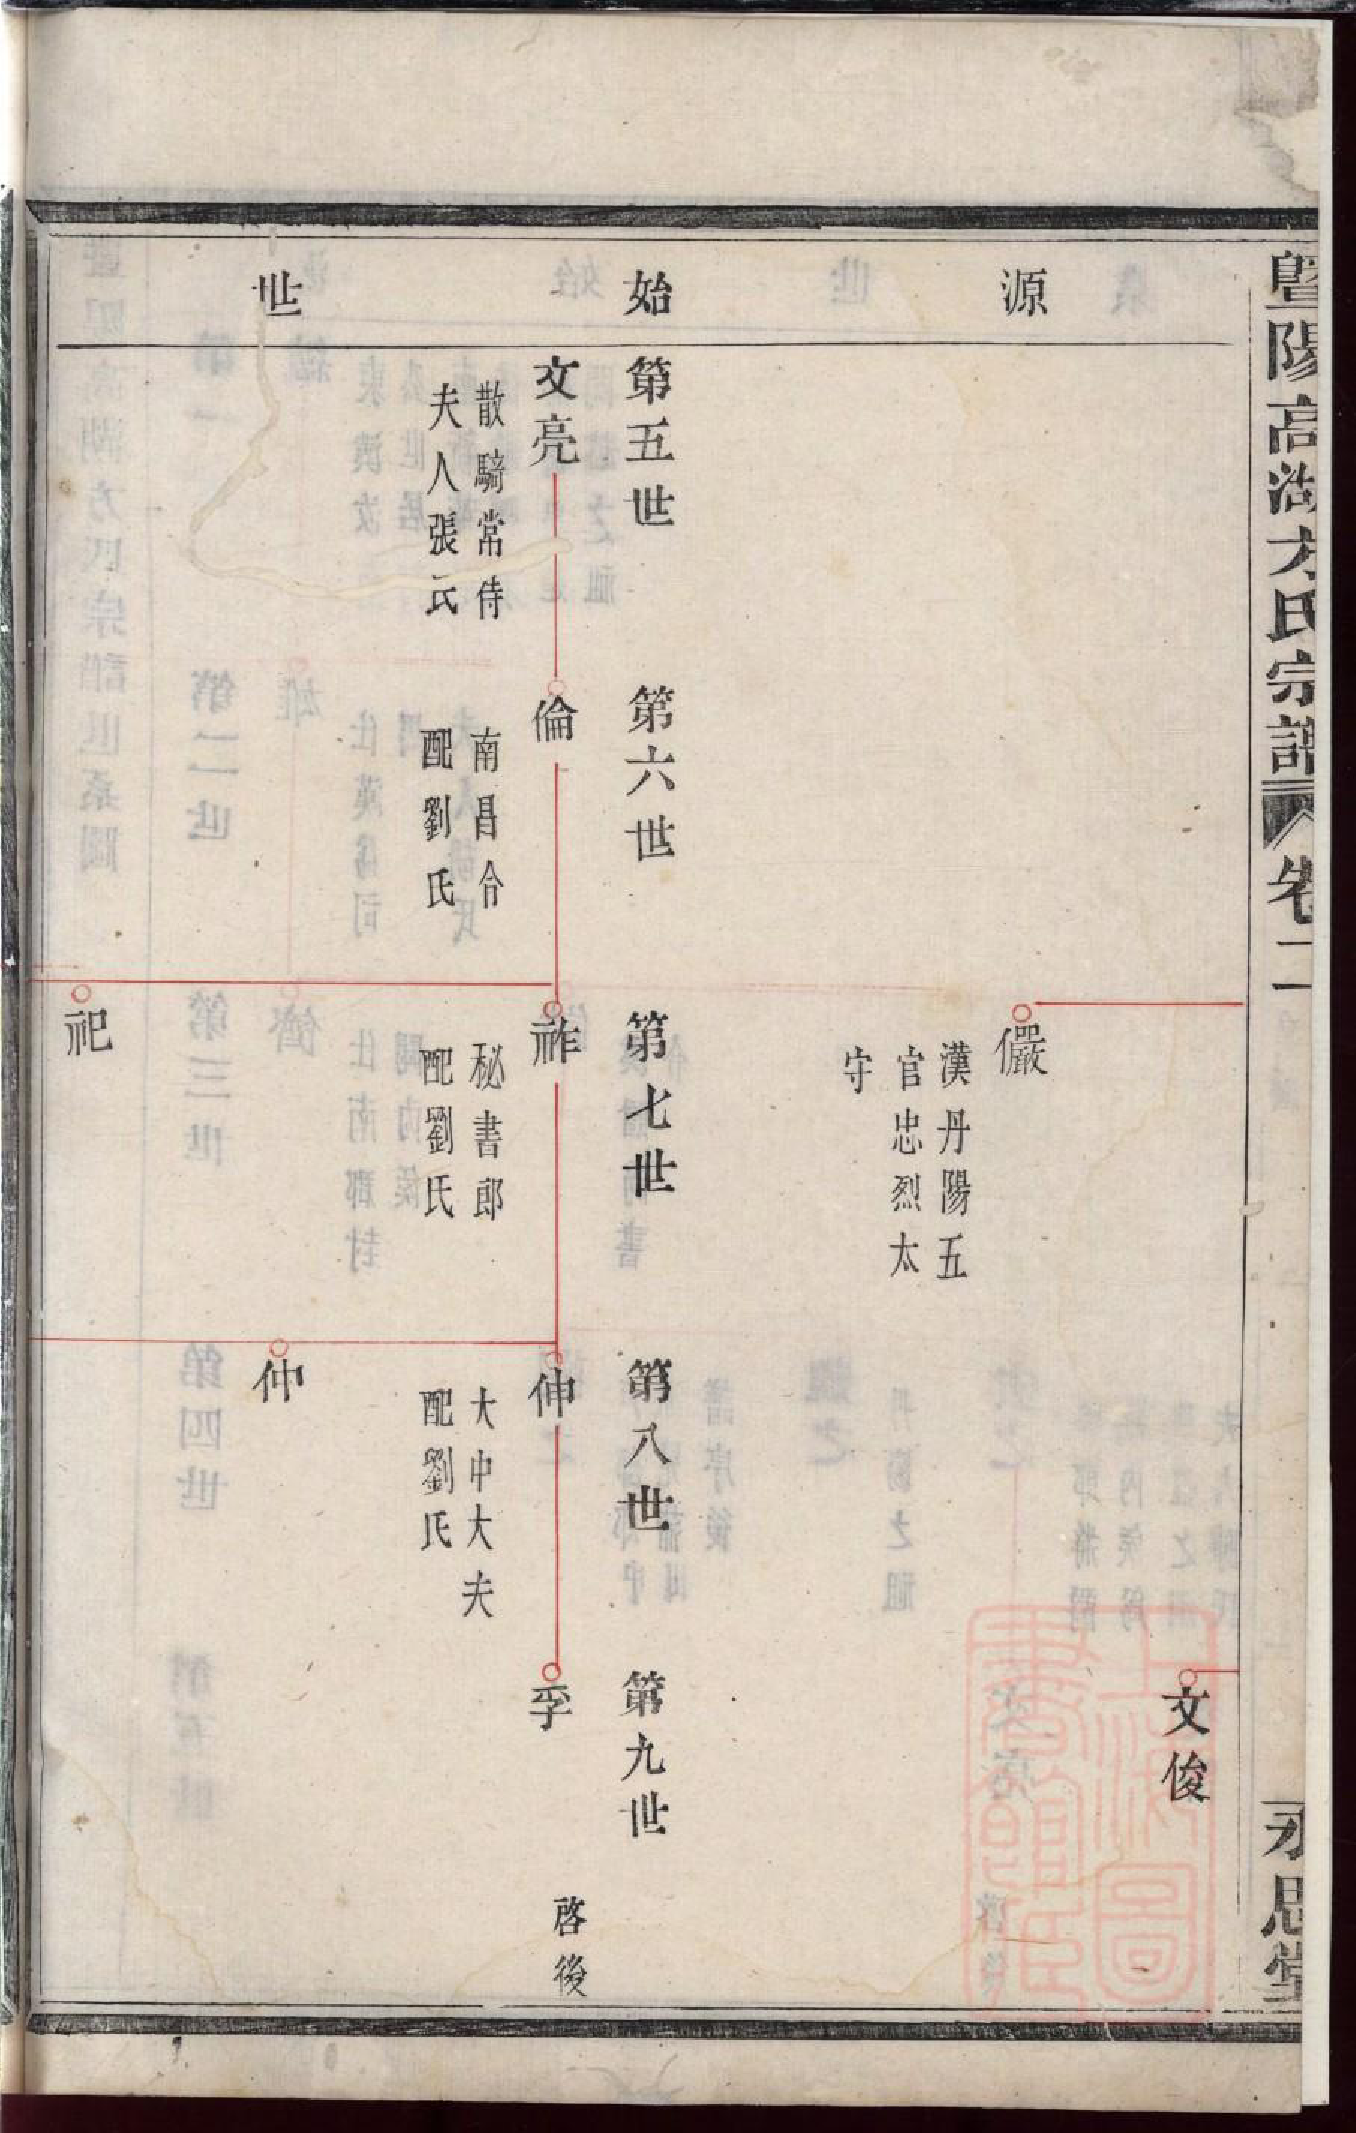 暨陽高湖方氏宗譜
卷二
永思堂
源
始
世
儼
漢丹陽五
官忠烈太
守
文俊
第五世
第六世
第七世
第八世
第九世
文亮
散騎常侍
夫人張氏
倫
南昌令
配劉氏
祚
秘書郎
配劉氏
伸
大中大夫
配劉氏
孚
啓後
仲
祀